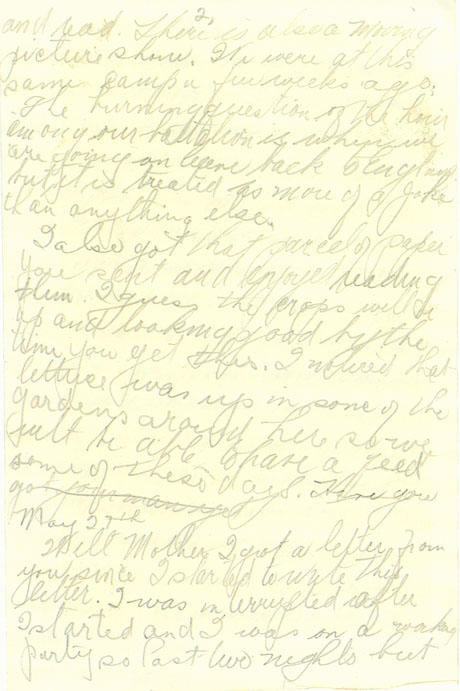 2.
and read. There is also a moving
picture show. We were at this
same camp a few weeks ago.
The burning question of the hour
among our battalion is when we
are going on leave back to England
but it is treated as more of a joke
than anything else.
I also got that parcel of paper
you sent and enjoyed reading
them. I guess the crops will be
up and looking good by the
time you get this. I noticed that
lettuce was up in some of the
gardens around here so we
will be able to have a feed
some of these days. Have you
got
May 27th
Well Mother I got a letter from
you since I started to write this
letter. I was interrupted after
I started and I was on a working
party so last two nights but